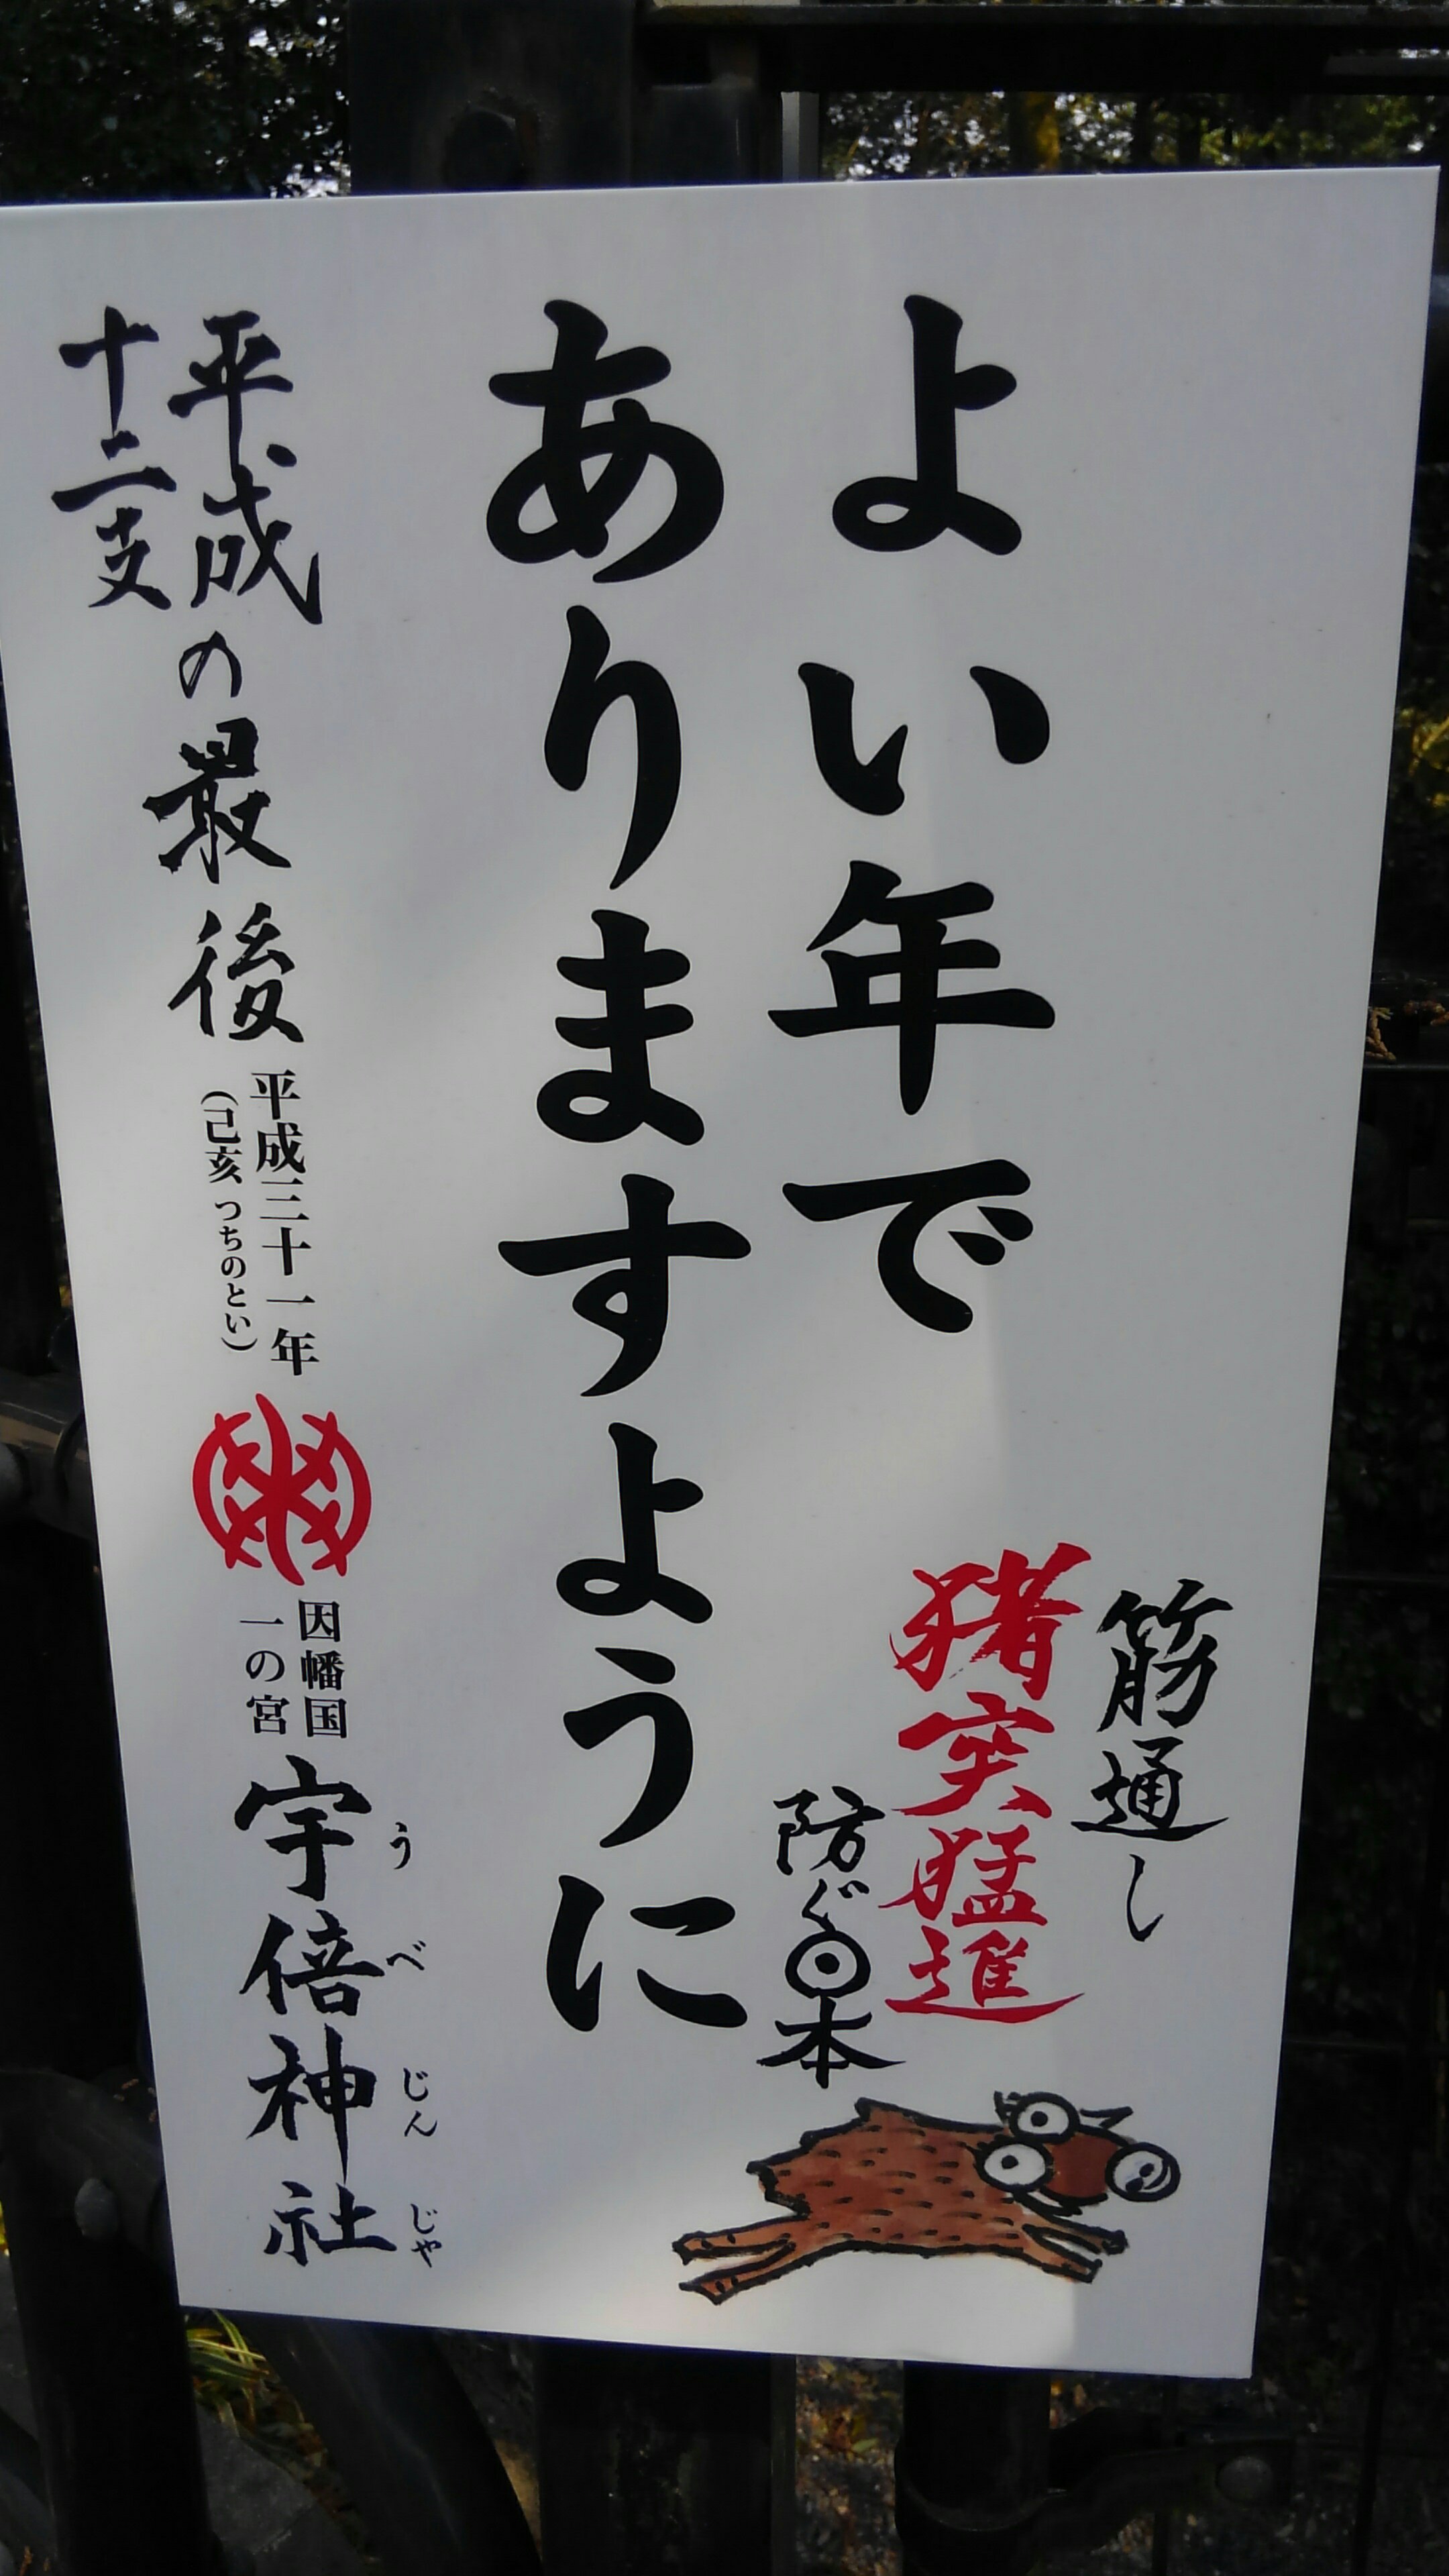 よい年で
ありますように
筋通し
猪突猛進
防ぐ日本
平成の最後
十二支
平成三十一年
(己亥 つちのとい)
因幡国
一の宮
宇倍神社
うべじんじゃ